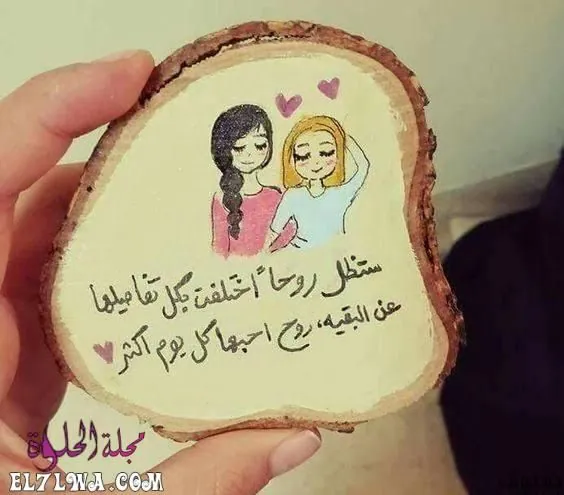 ستظل روحاً اختلفت بكل تفاصيلها
عن البقيه، روح احبها كل يوم اكثر
مجلة الحلوة
EL7LWA.COM